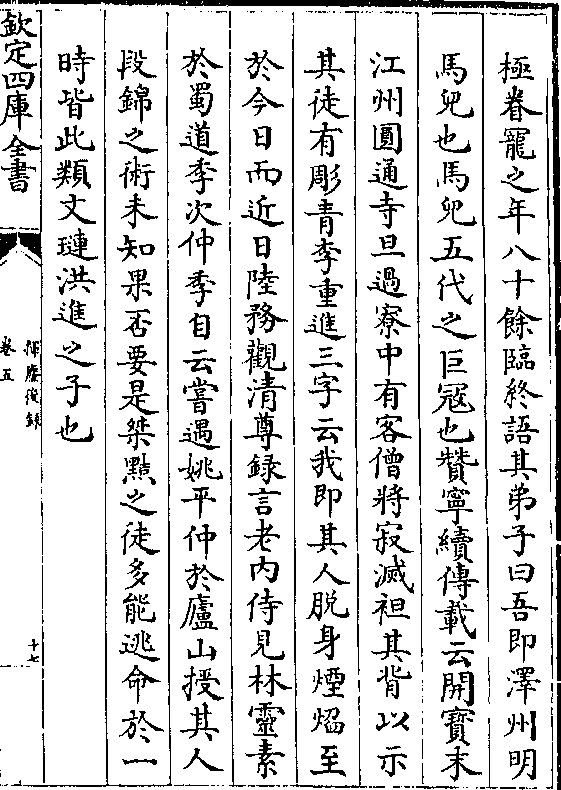 極眷寵之年八十餘臨終語其弟子曰吾即澤州明
馬兒也馬兒五代之巨冦也贊寧續傳載云開寳末
江州圓通寺旦過寮中有客僧將寂滅袒其背以示
其徒有彫青李重進三字云我即其人脱身煙熖至
於今日而近日陸務觀清尊録言老内侍見林靈素
於蜀道李次仲季自云嘗遇姚平仲於廬山授其人
段錦之術未知果否要是桀黠之徒多能逃命於一
時皆此類文璉洪進之子也
欽定四庫全書
揮麈後錄
卷五
十七